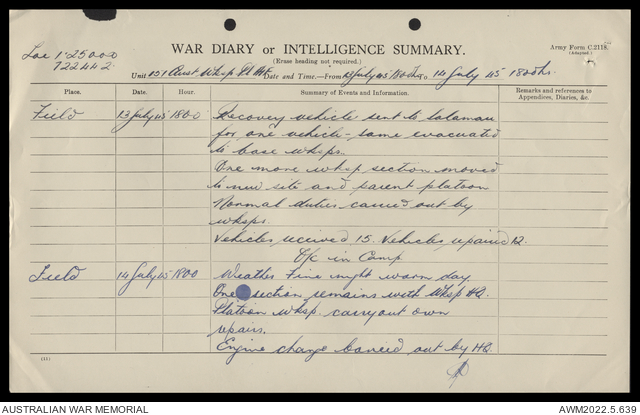 Loc 1·25000
722442
WAR DIARY or INTELLIGENCE SUMMARY.
(Erase heading not required.)
Army Form C.2118.
(Adapted.)
Unit 151 Aust Wksp Pl Date and Time.—From 13 July 45 1800 hrs To 14 July 45 1800 hrs.
Place. Date. Hour. Summary of Events and Information. Remarks and references to Appendices, Diaries, &c.
Field 13 July 45 1800 Recovery vehicle sent to
for one vehicle – same evacuated
to base wksps.
One more wksp section moved
to new site and parent platoon
Normal duties carried out by
wksps.
Vehicles received 15. Vehicles repaired 12.
O/c in Camp
Field 14 July 45 1800 Weather Fine night warm day.
One section remains with Wksp HQ.
Platoon wksp. carry out own
repairs.
Engine change carried out by HQ.
(11)
AUSTRALIAN WAR MEMORIAL
AWM2022.5.639